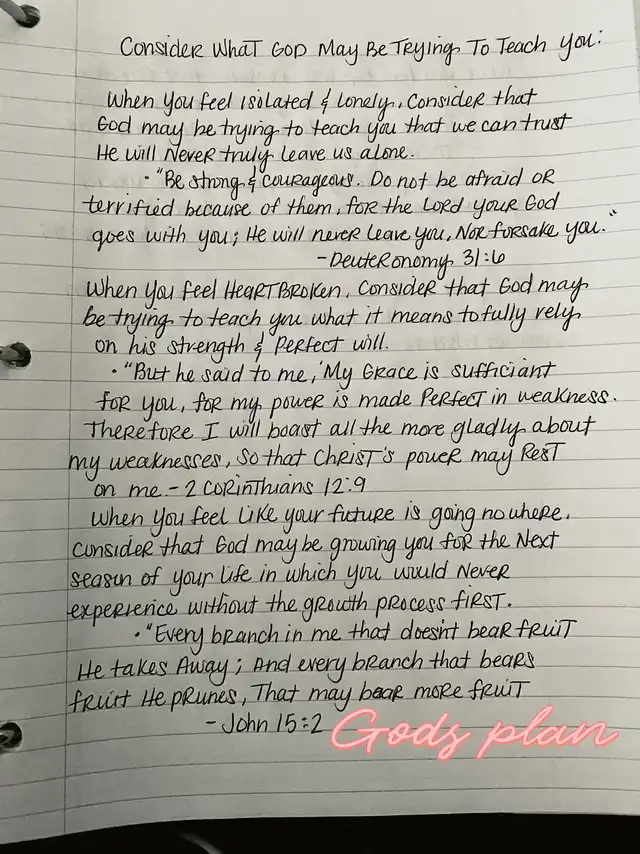 Consider What God May Be Trying To Teach You:
When you feel isolated & lonely, consider that
God may be trying to teach you that we can trust
He will never truly leave us alone.
• "Be strong & courageous. Do not be afraid or
terrified because of them, for the Lord your God
goes with you; He will never leave you, nor forsake you."
- Deuteronomy 31:6
When you feel Heartbroken, consider that God may
be trying to teach you what it means to fully rely
on his strength & perfect will.
• "But he said to me, 'My Grace is sufficiant
for you, for my power is made perfect in weakness.
Therefore I will boast all the more gladly about
my weaknesses, so that Christ's power may rest
on me. - 2 Corinthians 12:9
When you feel like your future is going nowhere,
consider that God may be growing you for the next
season of your life in which you would never
experience without the growth process first.
• "Every branch in me that doesn't bear fruit
He takes away; And every branch that bears
fruit He prunes, That may bear more fruit
- John 15:2
Gods plan